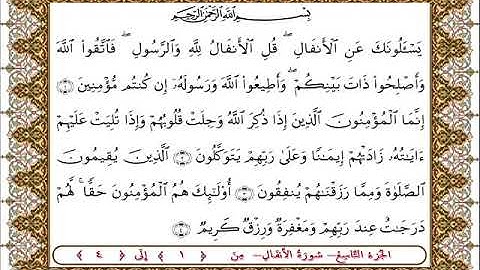 بِسْمِ ٱللَّهِ ٱلرَّحْمَٰنِ ٱلرَّحِيمِ
يَسْـَٔلُونَكَ عَنِ ٱلْأَنفَالِ ۖ قُلِ ٱلْأَنفَالُ لِلَّهِ وَٱلرَّسُولِ ۖ فَٱتَّقُوا۟ ٱللَّهَ
وَأَصْلِحُوا۟ ذَاتَ بَيْنِكُمْ ۖ وَأَطِيعُوا۟ ٱللَّهَ وَرَسُولَهُۥٓ إِن كُنتُم مُّؤْمِنِينَ ﴿١﴾
إِنَّمَا ٱلْمُؤْمِنُونَ ٱلَّذِينَ إِذَا ذُكِرَ ٱللَّهُ وَجِلَتْ قُلُوبُهُمْ وَإِذَا تُلِيَتْ عَلَيْهِمْ
ءَايَٰتُهُۥ زَادَتْهُمْ إِيمَٰنًا وَعَلَىٰ رَبِّهِمْ يَتَوَكَّلُونَ ﴿٢﴾ ٱلَّذِينَ يُقِيمُونَ
ٱلصَّلَوٰةَ وَمِمَّا رَزَقْنَٰهُمْ يُنفِقُونَ ﴿٣﴾ أُو۟لَٰٓئِكَ هُمُ ٱلْمُؤْمِنُونَ حَقًّا ۚ لَّهُمْ
دَرَجَٰتٌ عِندَ رَبِّهِمْ وَمَغْفِرَةٌ وَرِزْقٌ كَرِيمٌ ﴿٤﴾
الجزء التاسع – سورة الأنفال – من ﴿ ١ ﴾ إلى ﴿ ٤ ﴾